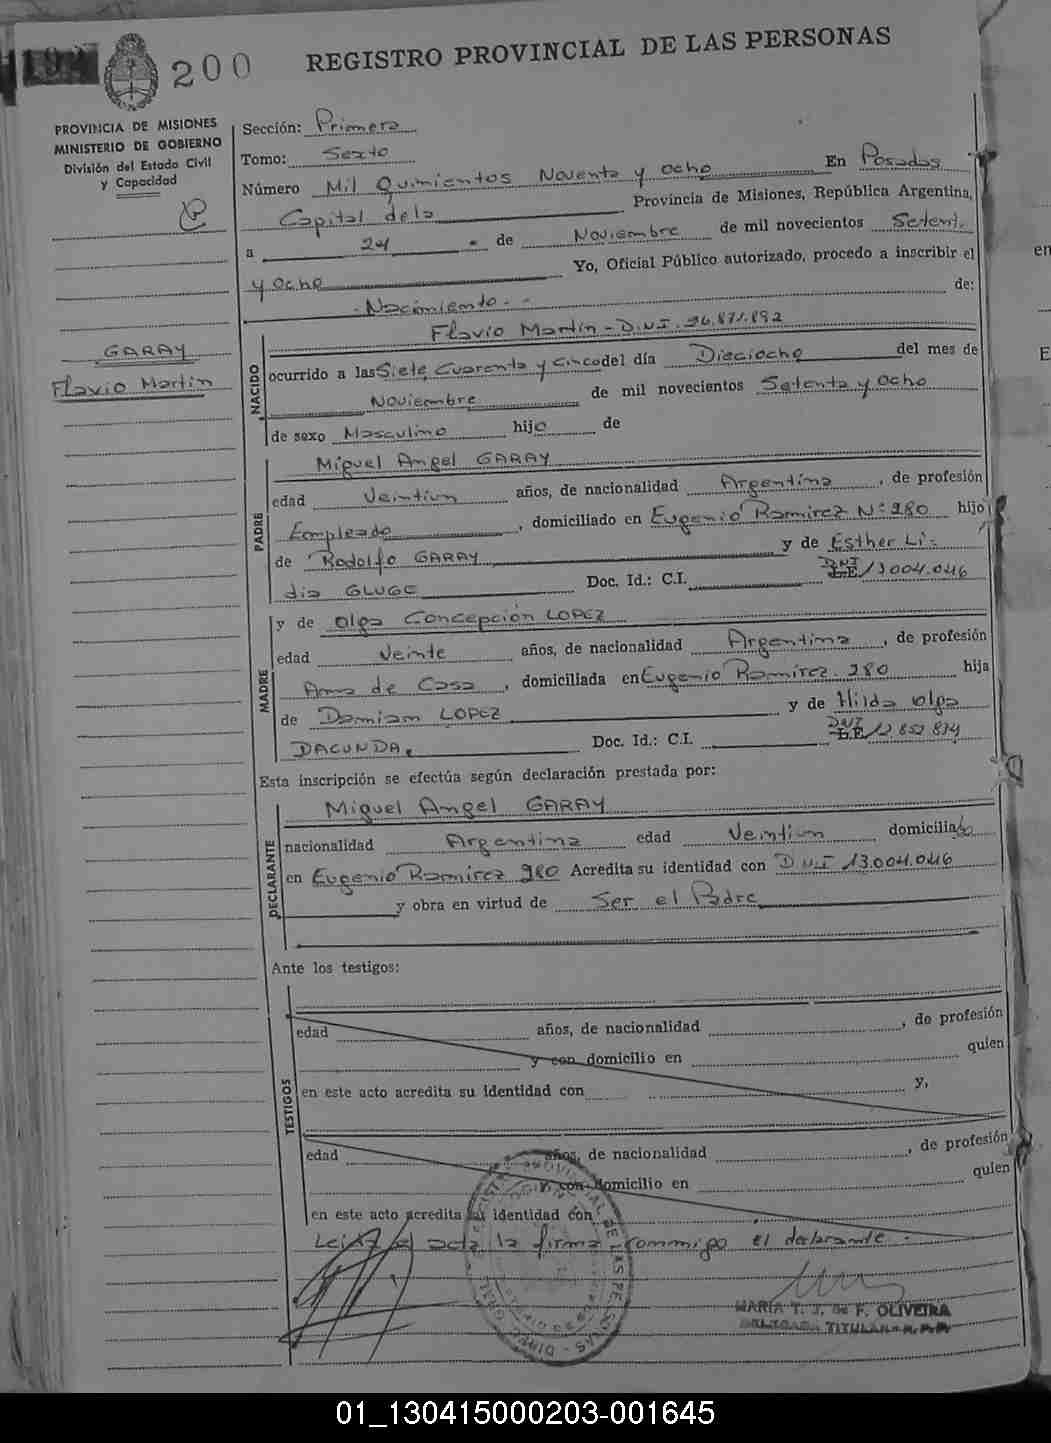 200
REGISTRO PROVINCIAL DE LAS PERSONAS
PROVINCIA DE MISIONES
MINISTERIO DE GOBIERNO
División del Estado Civil
y Capacidad
GARAY
Flavio Martin
Sección: Primera
Tomo: Sexto
Número Mil Quinientos Noventa y ocho En Posadas
Capital dela Provincia de Misiones, República Argentina,
a 24 de Noviembre de mil novecientos Setent.
y Ocho Yo, Oficial Público autorizado, procedo a inscribir el
Nacimiento de:
NACIDO
Flavio Martin - D.N.I. 26.871.892
ocurrido a las Siete, Cuarenta y Cinco del día Dieciocho del mes de
Noviembre de mil novecientos Setenta y Ocho
de sexo Masculino hijo de
PADRE
Miguel Angel GARAY
edad Veintiun años, de nacionalidad Argentina, de profesión
Empleado, domiciliado en Eugenio Ramirez Nº 280 hijo
de Rodolfo GARAY y de Esther Li=
dia GLUGE Doc. Id.: C.I. DNI L.E. 13.004.046
MADRE
y de Olga Concepción LOPEZ
edad Veinte años, de nacionalidad Argentina, de profesión
Ama de Casa, domiciliada en Eugenio Ramirez. 280 hija
de Damian LOPEZ y de Hilda Olga
DACUNDA. Doc. Id.: C.I. DNI L.E. 12 852 834
Esta inscripción se efectúa según declaración prestada por:
DECLARANTE
Miguel Angel GARAY
nacionalidad Argentina edad Veintiun domiciliado
en Eugenio Ramirez 280 Acredita su identidad con D.N.I 13.004.046
y obra en virtud de Ser el Padre
Ante los testigos:
TESTIGOS
edad años, de nacionalidad , de profesión
y con domicilio en quien
en este acto acredita su identidad con y,
edad años, de nacionalidad , de profesión
y con domicilio en quien
en este acto acredita su identidad con
Leida el acta la firma conmigo el declarante.
MARIA T. J. de F. OLIVEIRA
DELEGADA TITULAR
01_130415000203-001645